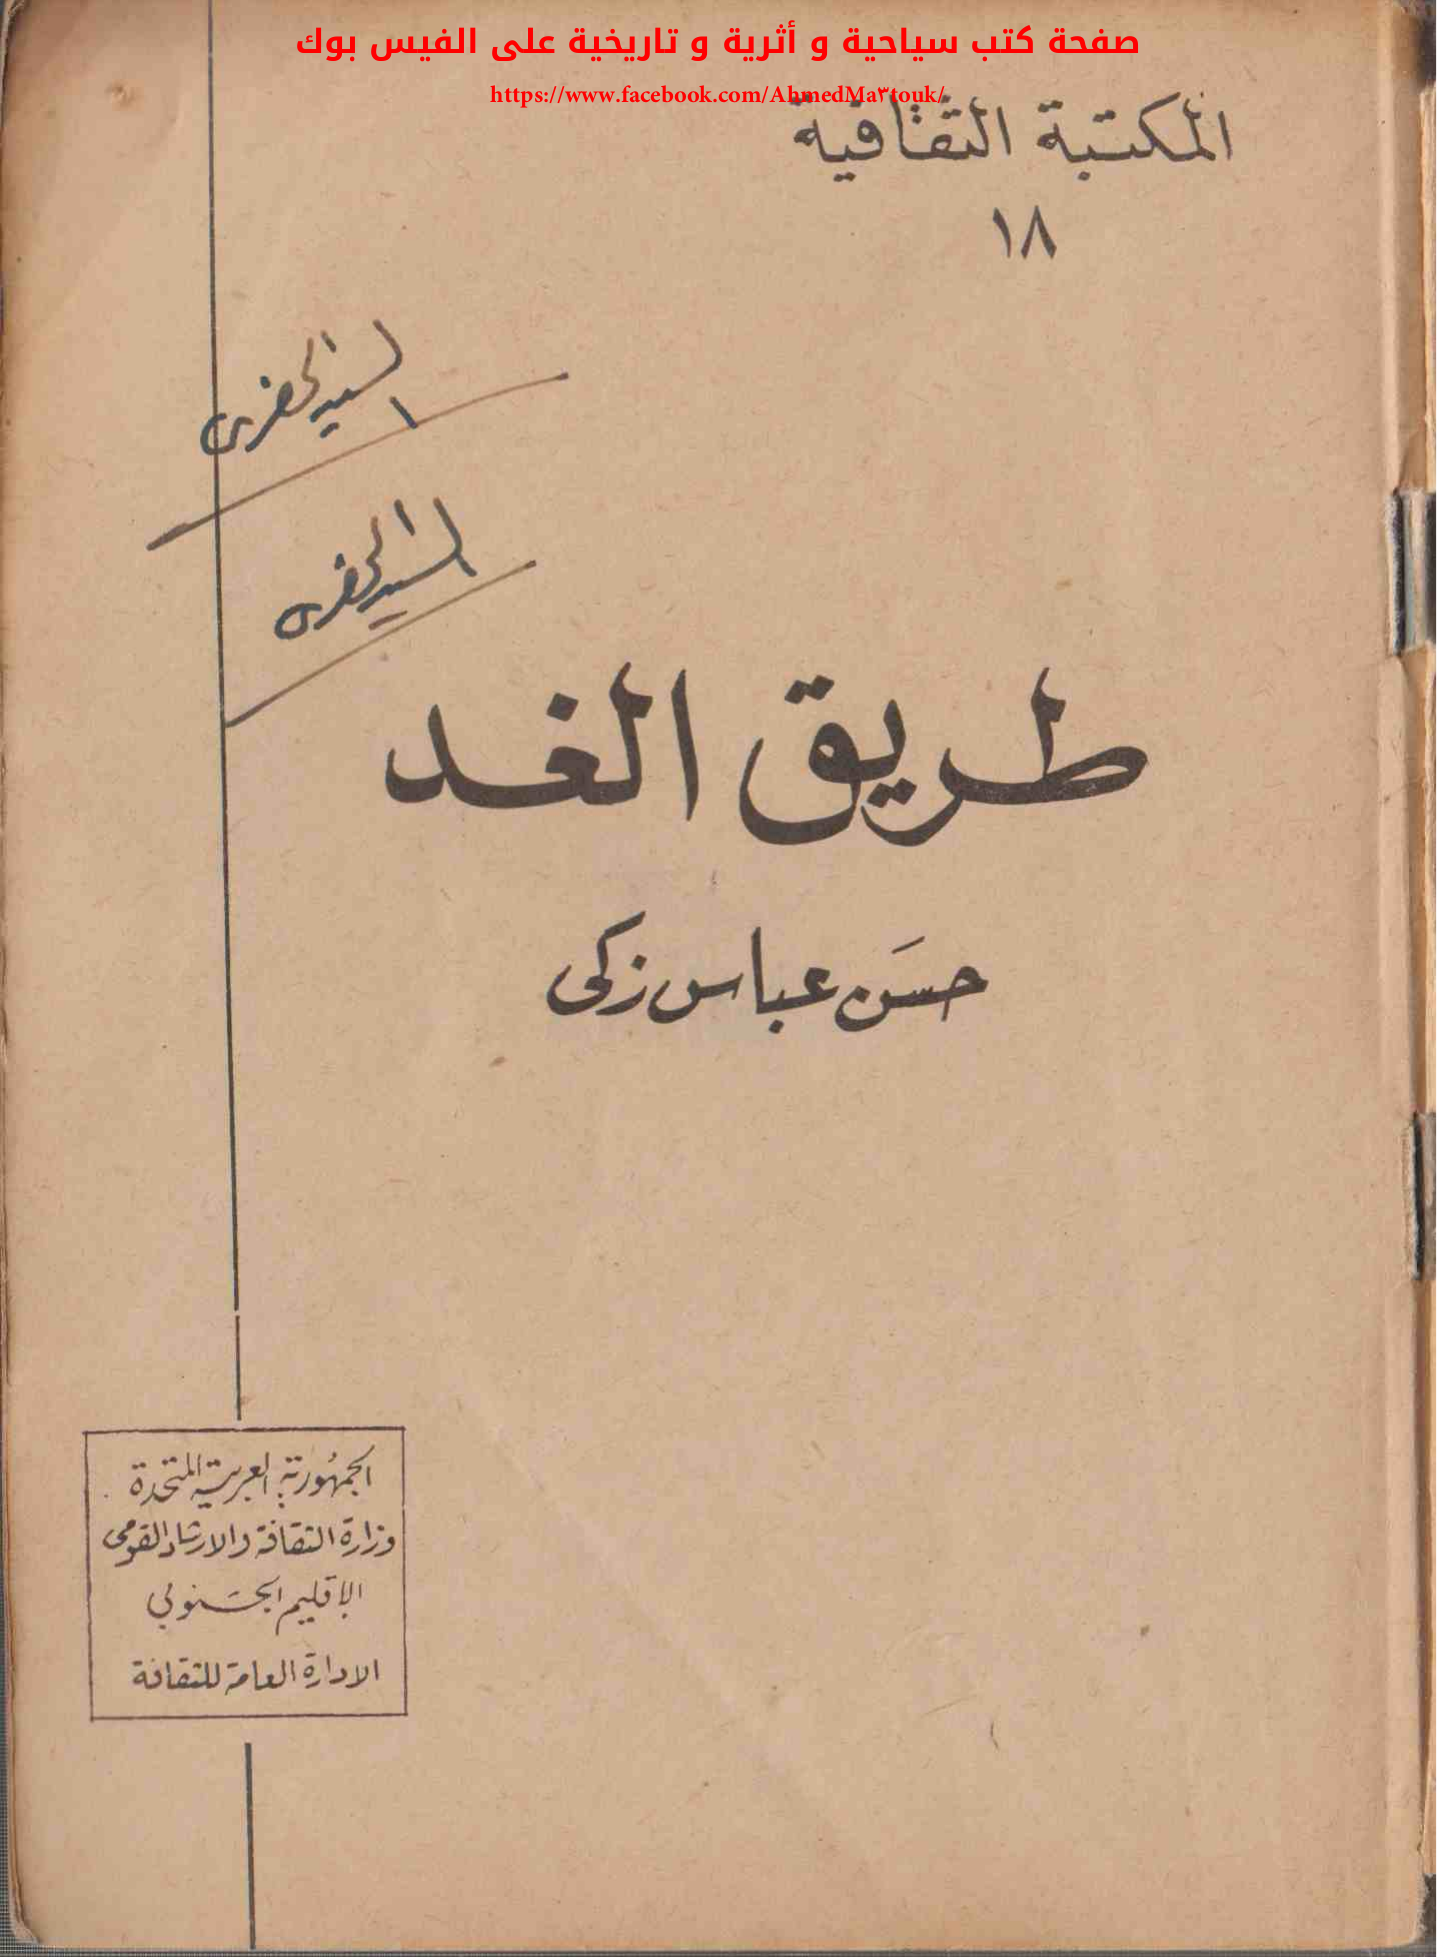 صفحة كتب سياحية و أثرية و تاريخية على الفيس بوك
https://www.facebook.com/AhmedMa٣touk/
المكتبة الثقافية
١٨
السيد الخضرى
السيد الخضرى
طريق الغد
حسَن عباس زكى
الجمهُورية العربية المتحدة
وزارة الثقافة والارشاد القومى
الإقليم الجَنوبي
الادارة العامة للثقافة